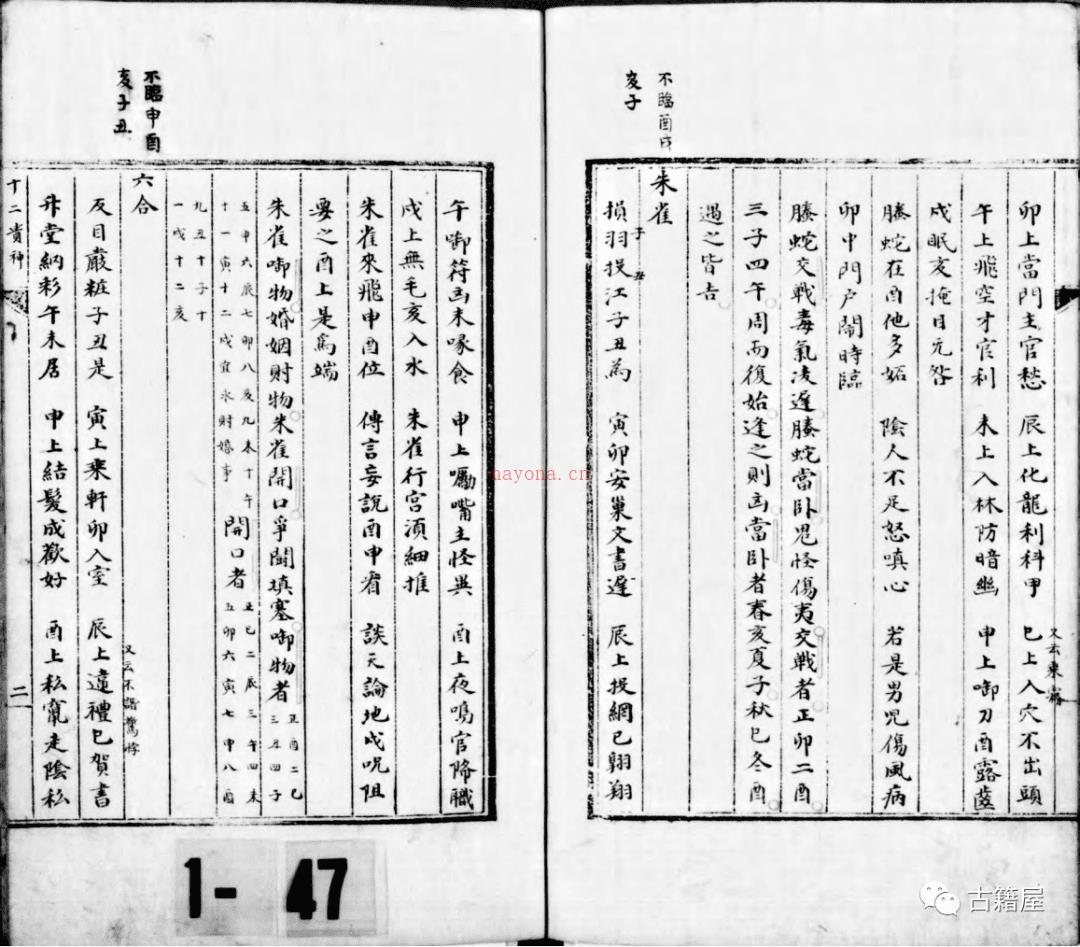 卯上當門主官愁　辰上化龍利科甲　巳上入穴不出頭
又云東霧
午上飛空才官利　未上入林防暗幽　申上啣刀酉露齒
戌眠亥掩目元咎
螣蛇在酉他多妬　陰人不足怒嗔心　若是男咒傷風病
卯中門戶鬧時臨
螣蛇交戰毒氣凌遲螣蛇當卧鬼怪傷夷交戰者正卯二酉
三子四午周而復始逢之則凶當卧者春亥夏子秋巳冬酉
遇之皆吉
不臨酉戌
亥子
朱雀
子丑
損羽投江子丑為　寅卯安巢文書遲　辰上投網巳翱翔
午啣符凶未喙食　申上囑嘴主怪異　酉上夜鳴官降職
戌上無毛亥入水　朱雀行宮須細推
朱雀來飛申酉位　傳言妄說酉申省　談天論地戌呪阻
要之酉上是為端
朱雀啣物婚姻財物朱雀開口爭鬪填塞啣物者
正酉二巳
三子四子
五申六辰七卯八亥九未十午
十一寅十二戌宜永財婚事
開口者
丑巳二辰三午四未
五卯六寅七申八酉
九丑十子十
一戌十二亥
不臨申酉
亥子丑
六合
反目嚴粧子丑是　寅上乘軒卯入室　辰上違禮巳賀書
又云不諧驚悸
升堂納彩午未居　申上結髮成歡好　酉上私竄走陰私
十二貴神
二
1- 47
nayona.cn
古籍屋